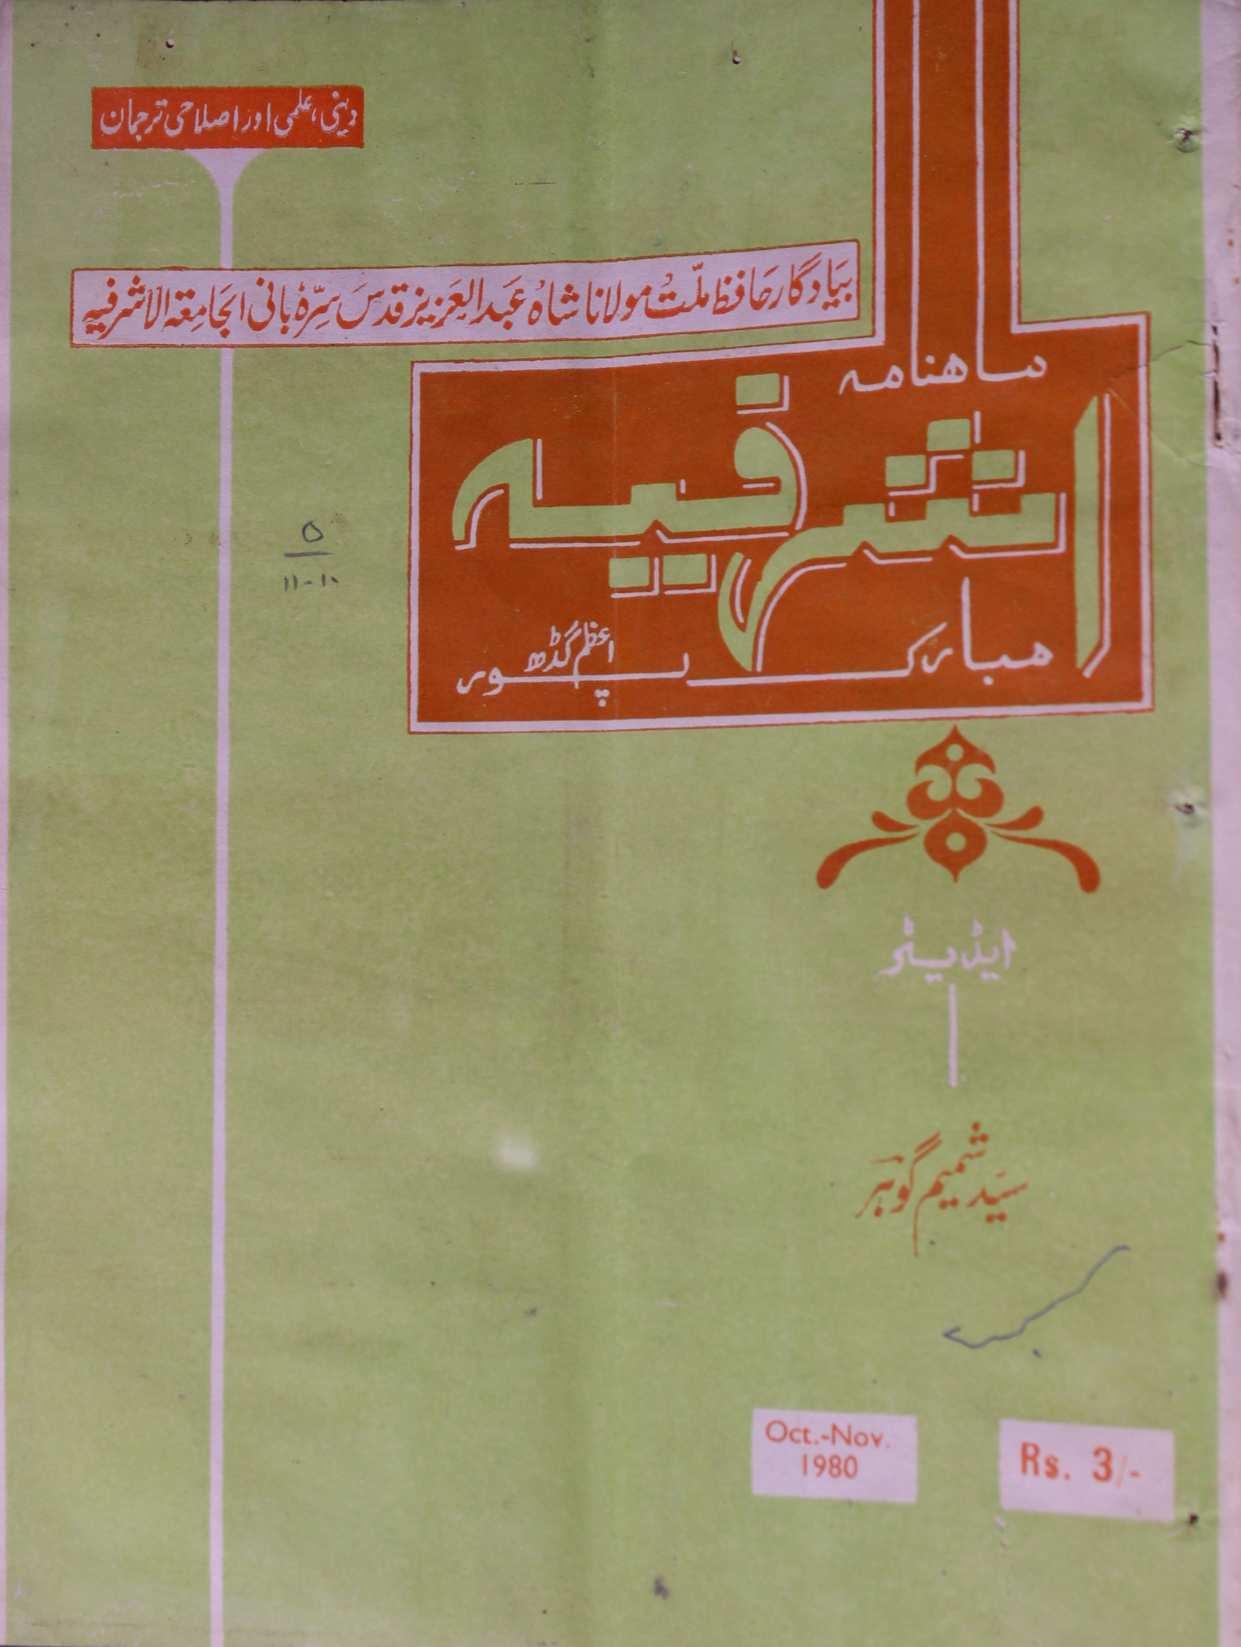 دینی، علمی اور اصلاحی ترجمان
بیادگار حافظ ملّت مولانا شاہ عبدالعزیز قدس سرہٗ بانی الجامعۃ الاشرفیہ
ماہنامہ
اشرفیہ
مبارک پور
اعظم گڈھ
۵
۱۱-۱۰
ایڈیٹر
سیّد شمیم گوہر
Oct.-Nov.
1980
Rs. 3/-